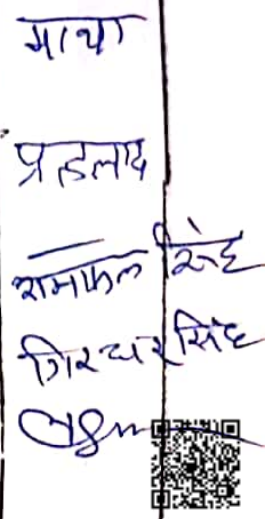 माया
प्रहलाद
रामफल सिंह
गिरधर सिंह